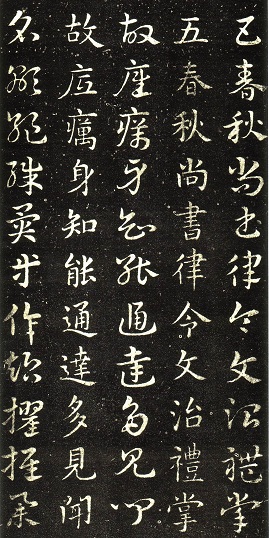 五春秋尚書律令文治禮掌
五春秋尚書律令文治禮掌
故癘身知能通達多見聞
故癘身知能通達多見聞
名顯絕殊異等作超擢推舉